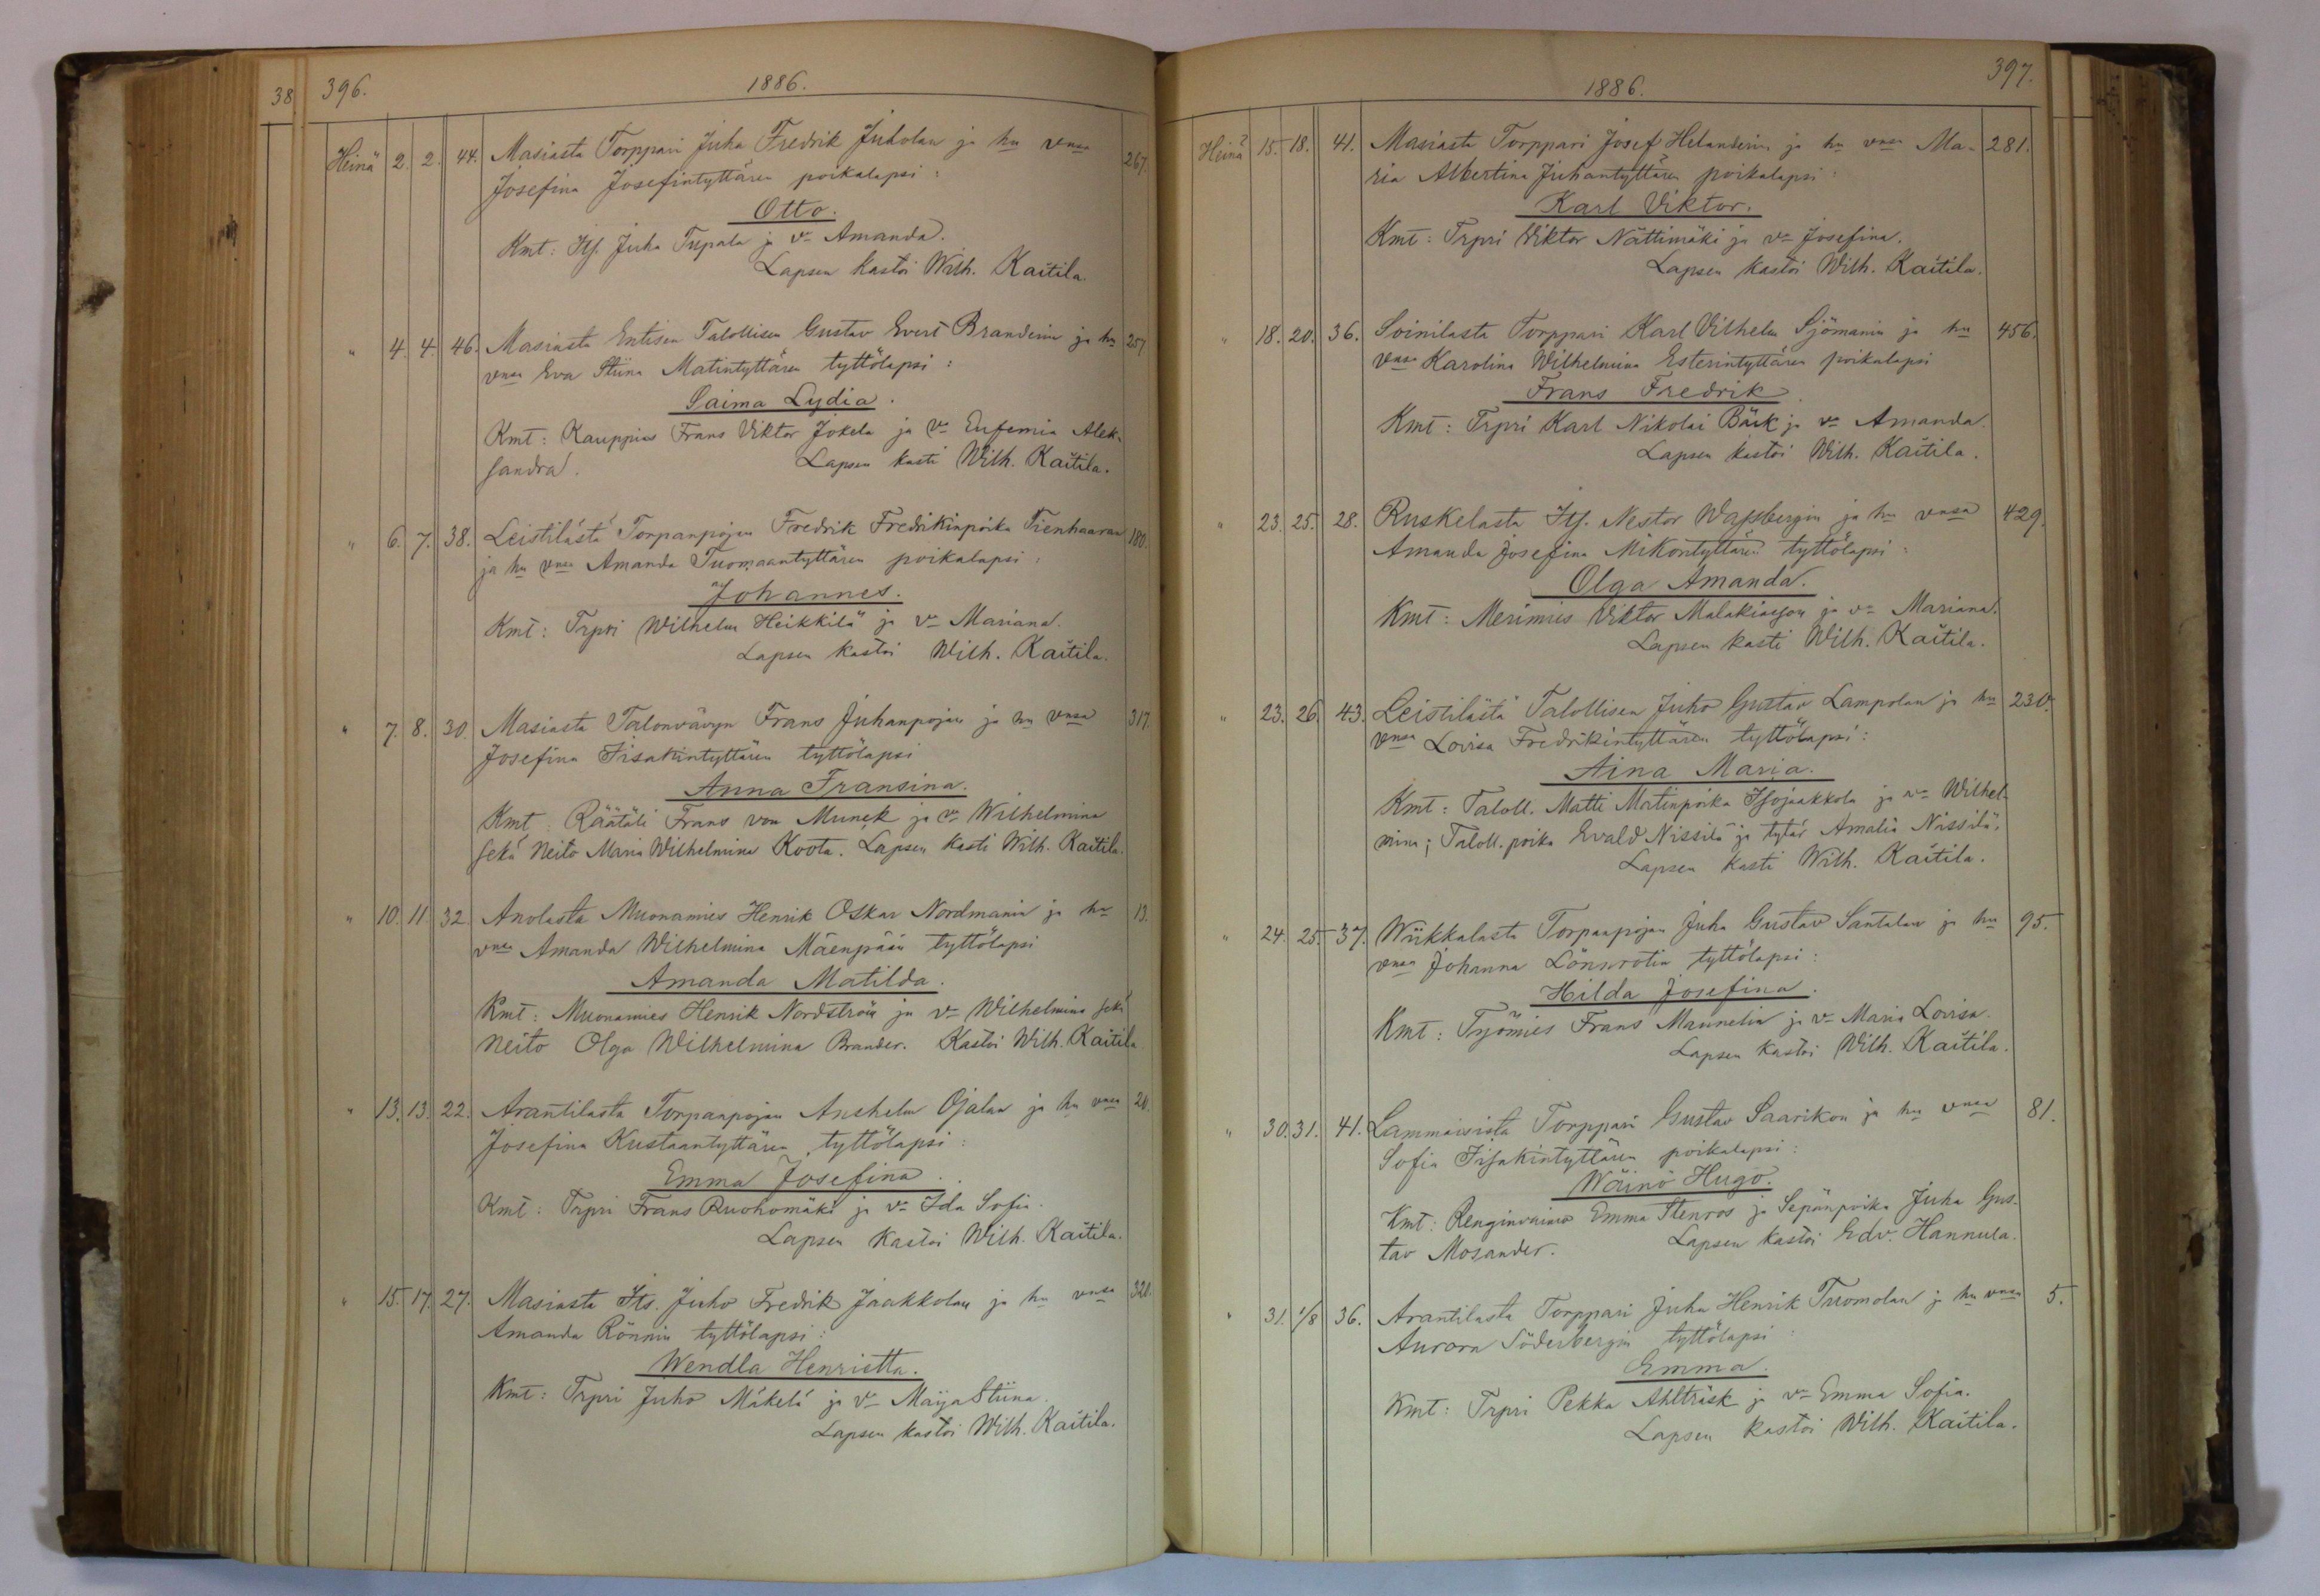 38
396.
1886.
Heinä 2. 2. 44. Masiasta Torppari Juha Fredrik Juholan ja hn vnsa 267.
Josefina Josefintyttären poikalapsi:
Otto.
Kmt: Its. Juha Tupala ja va Amanda.
Lapsen kastoi Wilh. Kaitila.
" 4. 4. 46. Masiasta Entisen Talollisen Gustav Evert Branderin ja hn 257
vnsa Eva Stiina Matintyttären tyttölapsi:
Saima Lydia.
Kmt: Kauppias Frans Viktor Jokela ja va Eufemia Alek-
sandra. Lapsen kasti Wilh. Kaitila.
" 6. 7. 38. Leistilästä Torpanpojan Fredrik Fredrikinpoika Tienhaaran 180.
ja hn vnsa Amanda Tuomaantyttären poikalapsi:
Johannes.
Kmt: Trpri Wilhelm Heikkilä ja va Mariana.
Lapsen kastoi Wilh. Kaitila.
" 7. 8. 30. Masiasta Talonvävyn Frans Juhanpojan ja hn vnsa 317.
Josefina Iisakintyttären tyttölapsi
Anna Fransina.
Kmt: Räätäli Frans von Munck ja va Wilhelmina
sekä Neito Maria Wilhelmina Koota. Lapsen kasti Wilh. Kaitila.
" 10. 11. 32. Anolasta Muonamies Henrik Oskar Nordmanin ja hn 13.
vnsa Amanda Wilhelmina Mäenpään tyttölapsi
Amanda Matilda.
Kmt: Muonamies Henrik Nordström ja va Wilhelmina sekä
Neito Olga Wilhelmina Brander. Kastoi Wilh. Kaitila
" 13. 13. 22. Arantilasta Torpanpojan Anshelm Ojalan ja hn vnsa 20.
Josefina Kustaantyttären tyttölapsi:
Emma Josefina.
Kmt: Trpri Frans Ruohomäki ja va Ida Sofia.
Lapsen kastoi Wilh. Kaitila.
" 15. 17. 27. Masiasta Its. Juho Fredrik Jaakkolan ja hn vnsa 320.
Amanda Rönnin tyttölapsi:
Wendla Henrietta.
Kmt: Trpri Juho Mäkelä ja va Maija Stiina.
Lapsen kastoi Wilh. Kaitila.
397.
1886.
Heinä 15. 18. 41. Masiasta Torppari Josef Helanderin ja hn vnsa Ma- 281.
ria Albertina Juhantyttären poikalapsi:
Karl Viktor.
Kmt: Trpri Viktor Nättimäki ja va Josefina.
Lapsen kastoi Wilh. Kaitila.
" 18. 20. 36. Soinilasta Torppari Karl Vilhelm Sjömanin ja hn 456.
vnsa Karolina Wilhelmina Esterintyttären poikalapsi
Frans Fredrik.
Kmt: Trpri Karl Nikolai Bäck ja va Amanda.
Lapsen kastoi Wilh. Kaitila.
" 23. 25. 28. Ruskelasta Its. Nestor Wassbergin ja hn vnsa 429.
Amanda Josefina Mikontyttären tyttölapsi:
Olga Amanda.
Kmt: Merimies Viktor Malakiasson ja va Mariana.
Lapsen kasti Wilh. Kaitila.
" 23. 26. 43. Leistilästä Talollisen Juho Gustav Lampolan ja hn 230.
vnsa Lovisa Fredrikintyttären tyttölapsi:
Aina Maria.
Kmt: Taloll. Matti Matinpoika Isojaakkola ja va Wilhel-
mina; Taloll. poika Evald Nissilä ja tytär Amalia Nissilä.
Lapsen kasti Wilh. Kaitila.
" 24. 25. 37. Wiikkalasta Torpanpojan Juha Gustav Santalan ja hn 95.
vnsa Johanna Lönnrotin tyttölapsi:
Hilda Josefina.
Kmt: Työmies Frans Mannelin ja va Maria Lovisa.
Lapsen kastoi Wilh. Kaitila.
" 30. 31. 41. Lammaisista Torppari Gustav Saarikon ja hn vnsa 81.
Sofia Iisakintyttären poikalapsi:
Wäinö Hugo.
Kmt: Renginvaimo Emma Stenros ja Sepänpoika Juha Gus-
tav Mosander. Lapsen kastoi Edv. Hannula.
" 31. 1/8 36. Arantilasta Torppari Juha Henrik Tuomolan ja hn vnsa 5.
Aurora Söderbergin tyttölapsi:
Emma.
Kmt: Trpri Pekka Ahlträsk ja va Emma Sofia.
Lapsen kastoi Wilh. Kaitila.